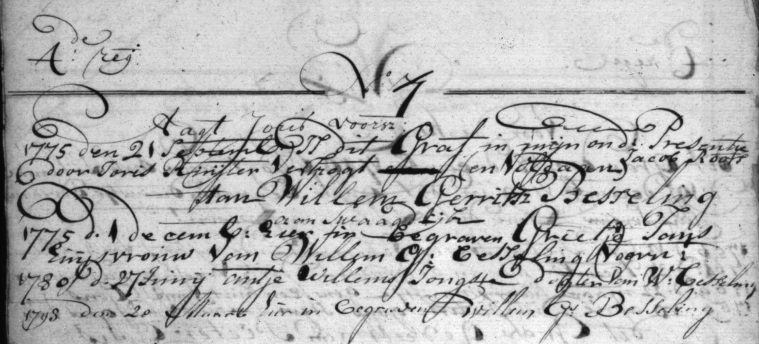 4de reg.
No 7
Aagt Joris voorn:
1775 den 21 Septemb. is dit Graf in mijn ond: Presentie
door Joris Ruijter Verkogt en Voldaan Jacob Kools
Aan Willem Gerritsz Besseling
1775 d. 1 decemb: hier in begraven Grietje Jans
huijsvrouw van Willem G: Besseling Voorn:
1780 d: 27 Junij Antje Willems Jongste dogter van W: Besseling
1798 den 20 Maart hier in begraven Willem Gs Besseling